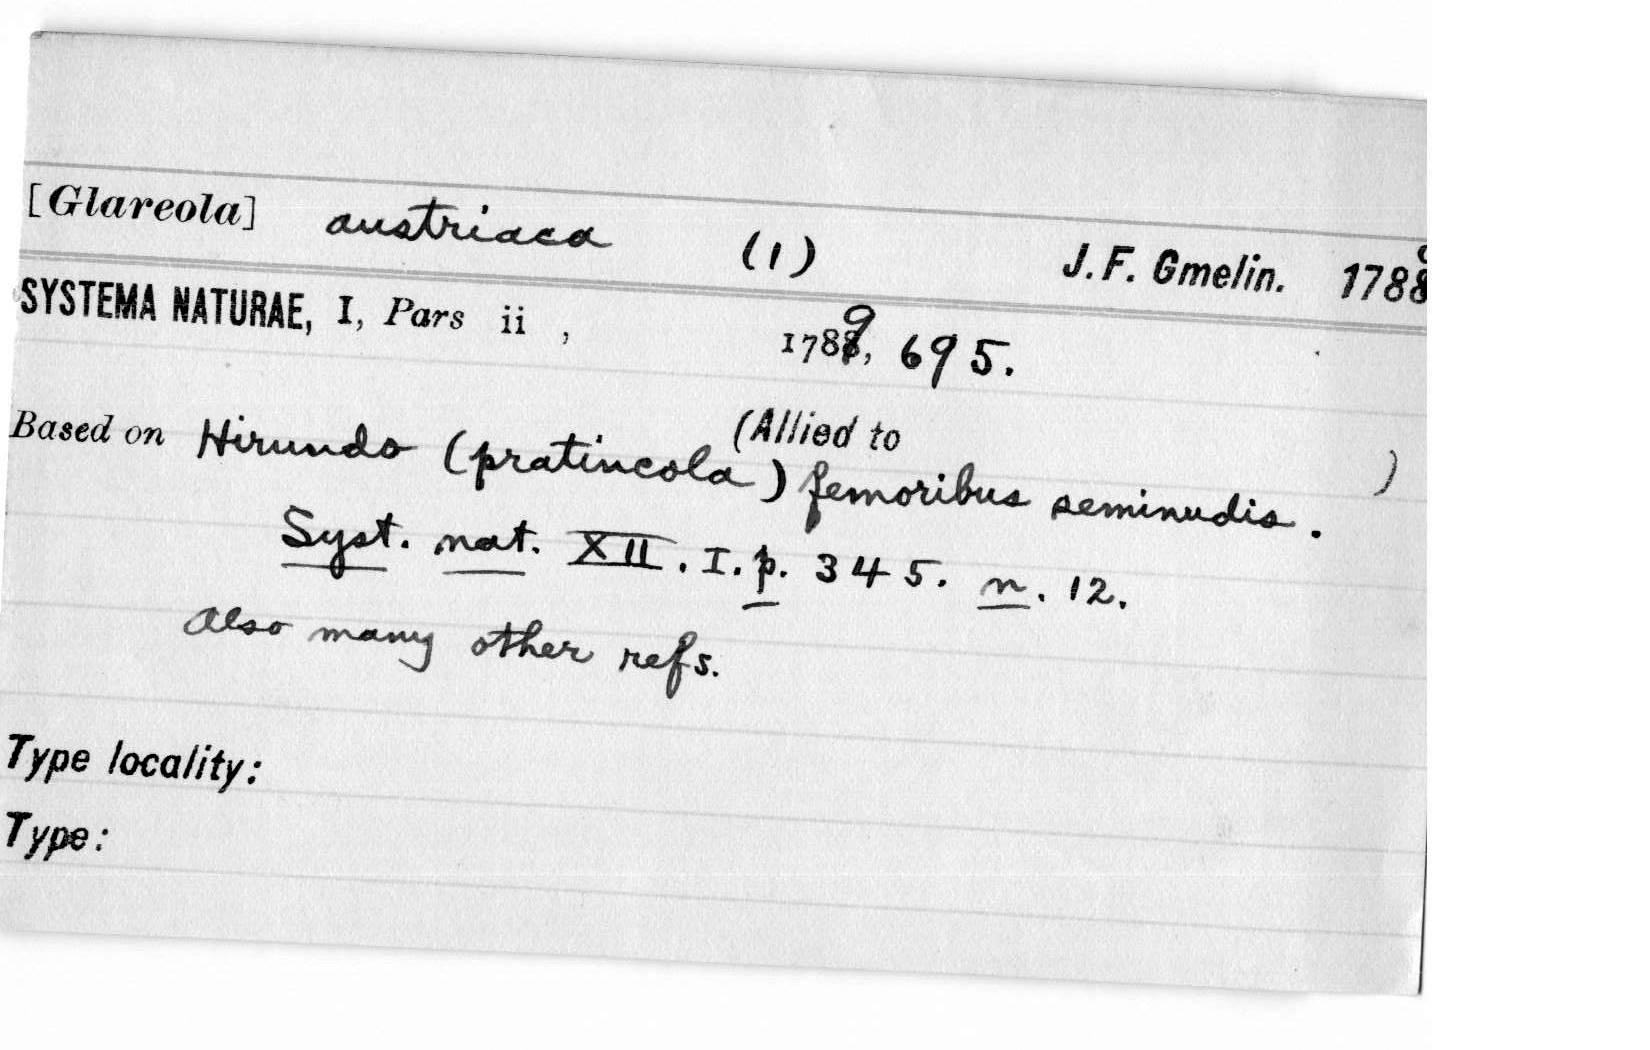 [Glareola] austriaca (1) J. F. Gmelin. 1788
SYSTEMA NATURAE, I, Pars ii , 1789, 695.
(Allied to )
Based on Hirundo (pratincola) femoribus seminudis.
Syst. nat. XII. I. p. 345. n. 12.
Also many other refs.
Type locality:
Type: